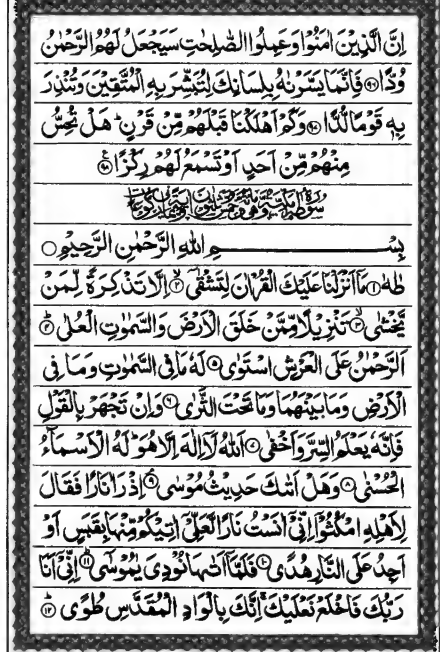 اِنَّ الَّذِيْنَ اٰمَنُوْا وَعَمِلُوا الصّٰلِحٰتِ سَيَجْعَلُ لَهُمُ الرَّحْمٰنُ
وُدًّا ﴿۹۶﴾ فَاِنَّمَا يَسَّرْنٰهُ بِلِسَانِكَ لِتُبَشِّرَ بِهِ الْمُتَّقِيْنَ وَتُنْذِرَ
بِهٖ قَوْمًا لُّدًّا ﴿۹۷﴾ وَكَمْ اَهْلَكْنَا قَبْلَهُمْ مِّنْ قَرْنٍ ؕ هَلْ تُحِسُّ
مِنْهُمْ مِّنْ اَحَدٍ اَوْ تَسْمَعُ لَهُمْ رِكْزًا ﴿۹۸﴾
بِسْمِ اللهِ الرَّحْمٰنِ الرَّحِيْمِ
طٰهٰ ﴿۱﴾ مَاۤ اَنْزَلْنَا عَلَيْكَ الْقُرْاٰنَ لِتَشْقٰۤى ﴿۲﴾ اِلَّا تَذْكِرَةً لِّمَنْ
يَّخْشٰى ﴿۳﴾ تَنْزِيْلًا مِّمَّنْ خَلَقَ الْاَرْضَ وَالسَّمٰوٰتِ الْعُلٰى ﴿۴﴾
اَلرَّحْمٰنُ عَلَى الْعَرْشِ اسْتَوٰى ﴿۵﴾ لَهٗ مَا فِى السَّمٰوٰتِ وَمَا فِى
الْاَرْضِ وَمَا بَيْنَهُمَا وَمَا تَحْتَ الثَّرٰى ﴿۶﴾ وَاِنْ تَجْهَرْ بِالْقَوْلِ
فَاِنَّهٗ يَعْلَمُ السِّرَّ وَاَخْفٰى ﴿۷﴾ اَللهُ لَاۤ اِلٰهَ اِلَّا هُوَ ؕ لَهُ الْاَسْمَآءُ
الْحُسْنٰى ﴿۸﴾ وَهَلْ اَتٰىكَ حَدِيْثُ مُوْسٰى ﴿۹﴾ اِذْ رَاٰ نَارًا فَقَالَ
لِاَهْلِهِ امْكُثُوْۤا اِنِّىْۤ اٰنَسْتُ نَارًا لَّعَلِّىْۤ اٰتِيْكُمْ مِّنْهَا بِقَبَسٍ اَوْ
اَجِدُ عَلَى النَّارِ هُدًى ﴿۱۰﴾ فَلَمَّاۤ اَتٰىهَا نُوْدِىَ يٰمُوْسٰى ﴿۱۱﴾ اِنِّىْۤ اَنَا
رَبُّكَ فَاخْلَعْ نَعْلَيْكَ ۚ اِنَّكَ بِالْوَادِ الْمُقَدَّسِ طُوًى ﴿۱۲﴾